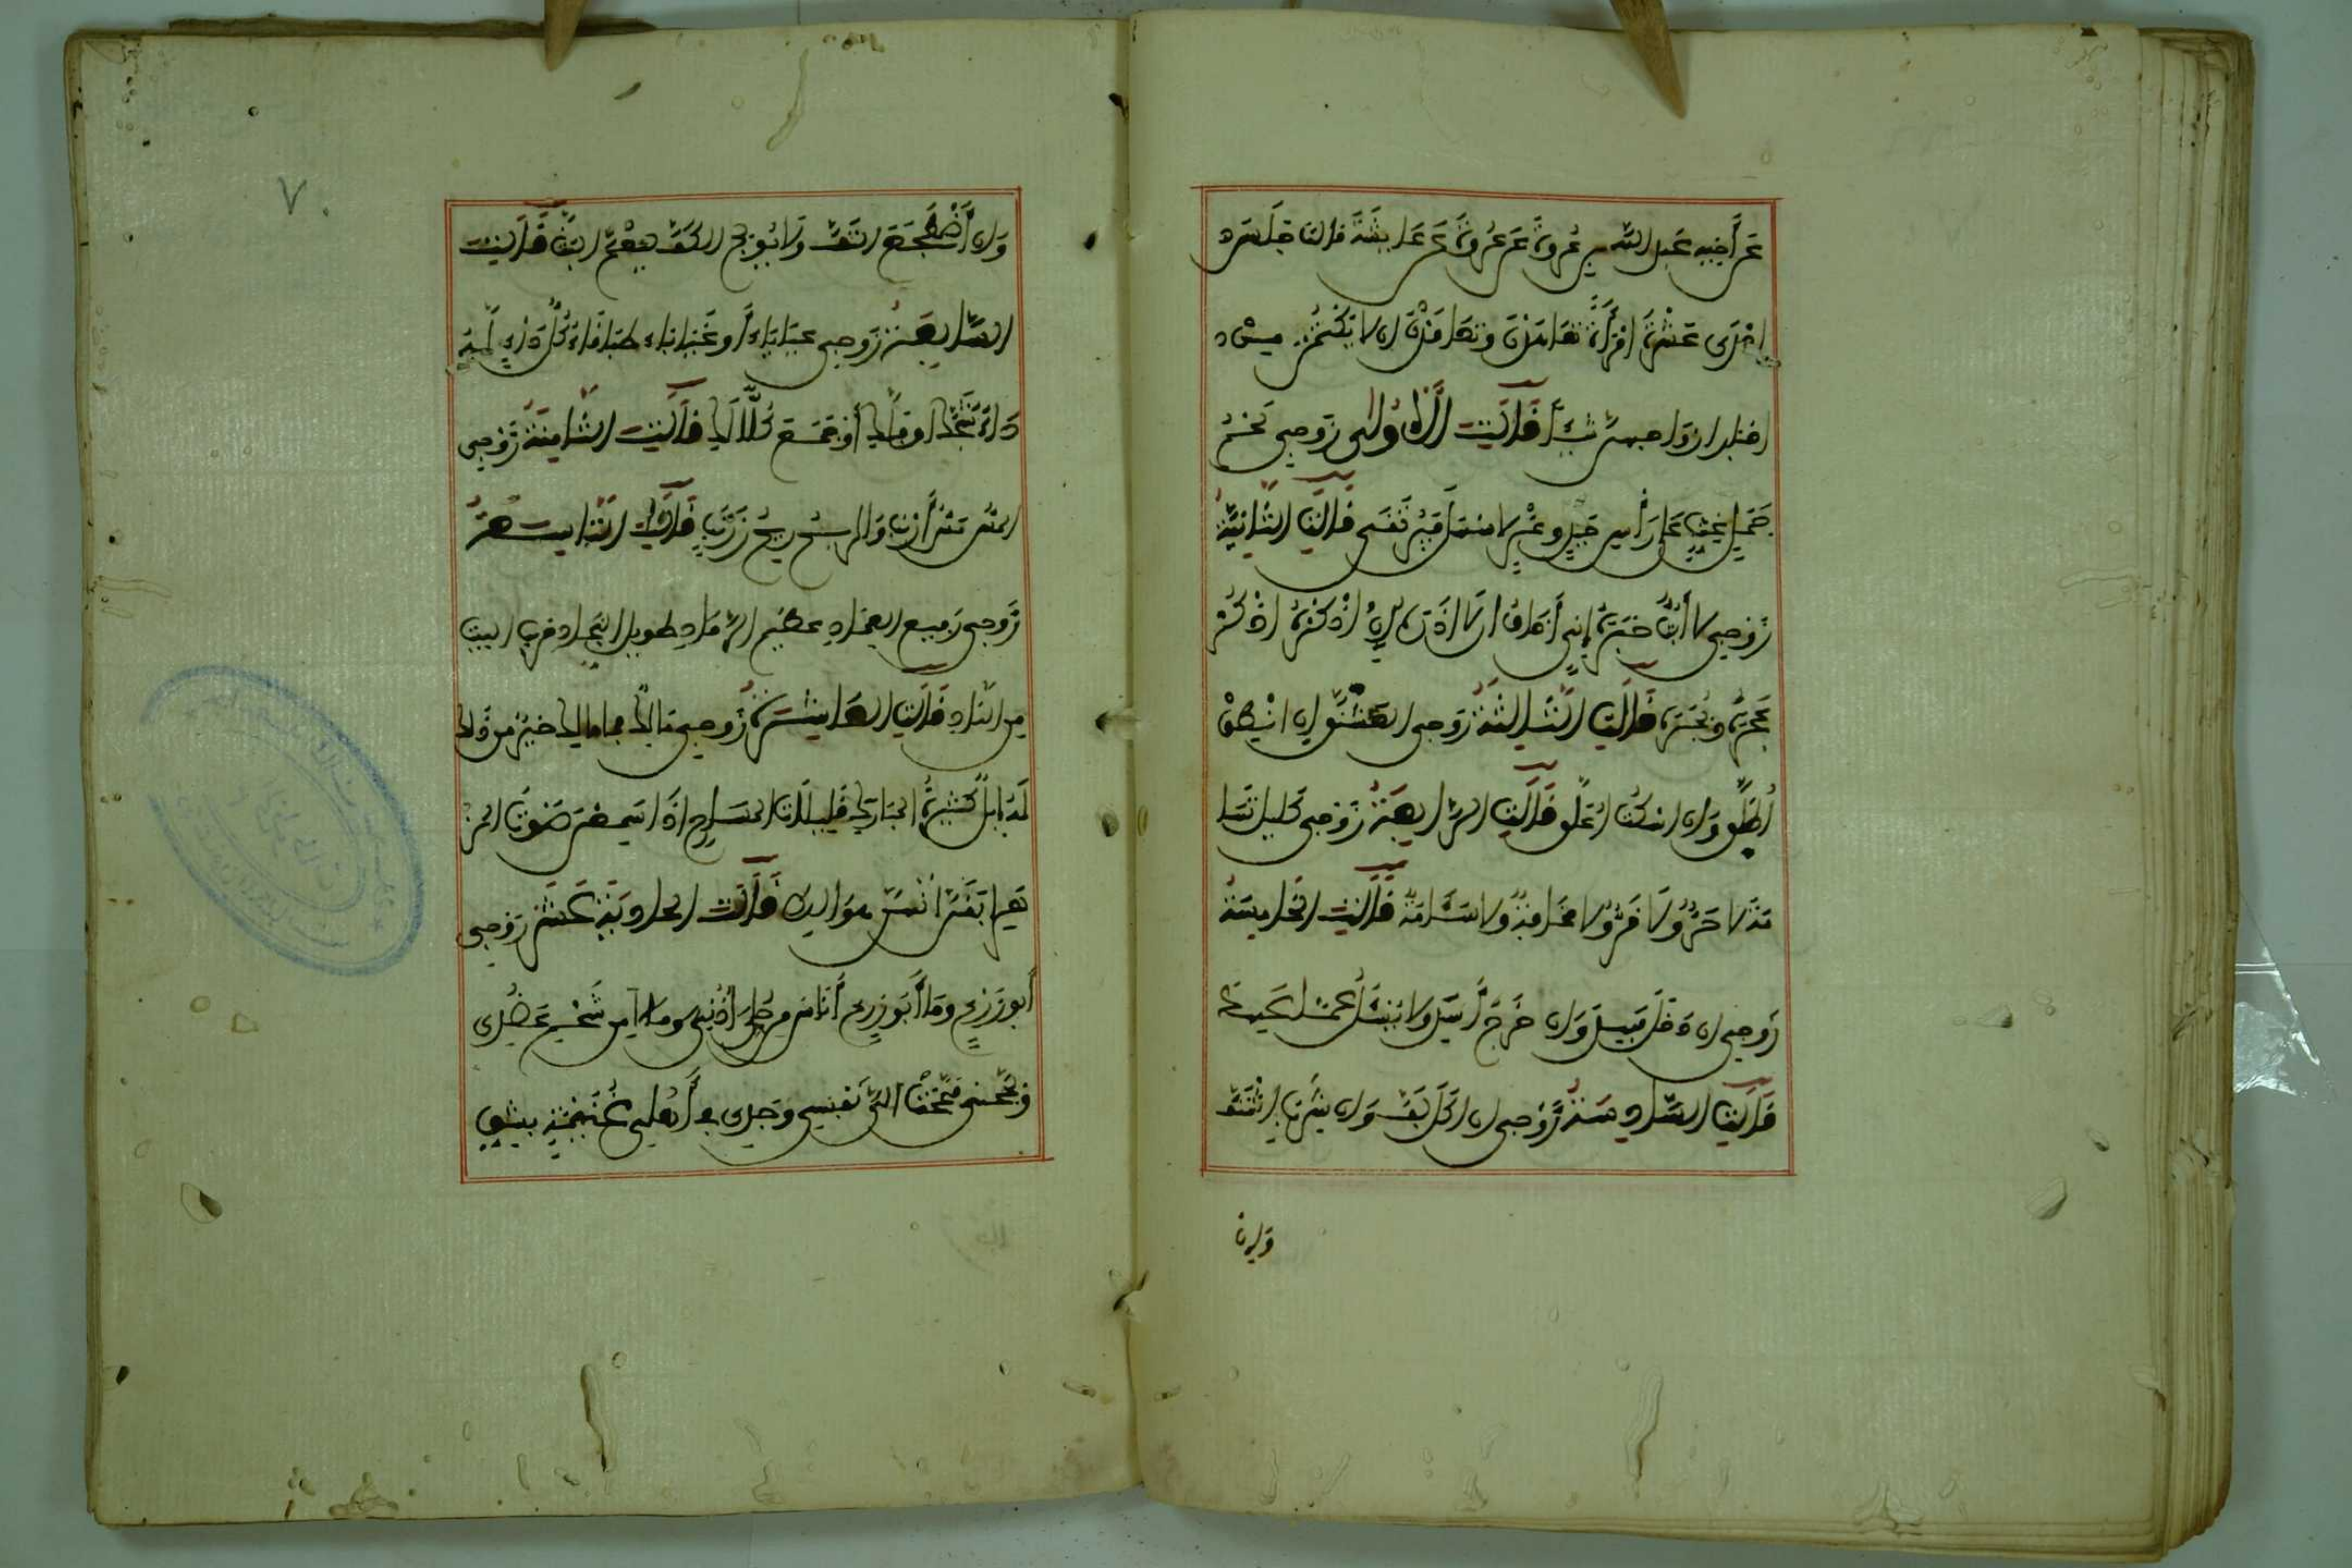 عَنْ أَخِيهِ عَبْدِ اللهِ بْنِ عُرْوَةَ عَنْ عُرْوَةَ عَنْ عَائِشَةَ قالت جَلَسَ
إِحْدَى عَشْرَةَ امْرَأَةً تَعَاهَدْنَ وتَعَاقَدْنَ ان لا يَكْتُمْنَ مِنْ
اخبار ازواجهن شيئا قَالَتِ الْأُولَى زَوْجِي لَحْمُ
جَمَلٍ غَثٍّ عَلَى رَأْسِ جَبَلٍ وَعْرٍ لا سَهْلٍ فَيُرْتَقَى قَالَتِ الثَّانِيَةُ
زَوْجِي لا أَبُثُّ خَبَرَهُ إِنِّي أَخَافُ ان لا أَذَرَهُ إن أَذْكُرْهُ أَذْكُرْ
عُجَرَهُ وبُجَرَهُ قَالَتِ الثَّالِثَةُ زَوْجِي العَشَنَّقُ إن أَنْطِقْ
أُطَلَّقْ وَإن اسكت أُعَلَّقْ قَالَتِ الرَّابِعَةُ زَوْجِي كَلَيْلِ تِهَا
مَةَ لا حَرٌّ وَلَا قُرٌّ ولا مَخَافَةٌ ولا سَآمَةٌ قَالَتِ الْخَامِسَةُ
زَوْجِي إن دَخَلَ فَهِدَ وَإن خَرَجَ أَسِدَ ولا يَسْئَلُ عَمَّا عَهِدَ
قَالَتِ السَّادِسَةُ زَوْجِي إن أَكَلَ لَفَّ وَإن شَرِبَ اشْتَفَّ
وَإن
٧٠
وَإن اضْطَجَعَ الْتَفَّ وَلَا يُولِجُ الكَفَّ لِيَعْلَمَ البَثَّ قَالَتِ
السَّابِعَةُ زَوْجِي عَيَايَاءُ أَو غَيَايَاءُ طَبَاقَاءُ كُلُّ دَاءٍ لَهُ
دَاءٌ شَجَّكِ او فَلَّكِ أَوْ جَمَعَ كُلًّا لَكِ قَالَتِ الثَّامِنَةُ زَوْجِي
المَسُّ مَسُّ أَرْنَبٍ وَالرِّيحُ رِيحُ زَرْنَبٍ قَالَتِ التَّاسِعَةُ
زَوْجِي رَفِيعُ العِمَادِ عَظِيمُ الرَّمَادِ طَوِيلُ النِّجَادِ قَرِيبُ البَيْتِ
مِنَ النَّادِ قَالَتِ العَاشِرَةُ زَوْجِي مَالِكٌ وما مالك مالك خَيْرٌ مِنْ ذَلِكِ
لَهُ إِبِلٌ كَثِيرَةُ المَبَارِكِ قَلِيلَاتُ المَسَارِحِ إِذَا سَمِعْنَ صَوْتَ المِزْ
هَرِ أَيْقَنَّ أَنَّهُنَّ هَوَالِكُ قَالَتِ الحَادِيَةَ عَشْرَةَ زَوْجِي
أَبُو زَرْعٍ وَمَا أَبُو زَرْعٍ أَنَاسَ مِنْ حُلِيٍّ أُذُنَيَّ وملأ مِنْ شَحْمٍ عَضُدَيَّ
وَبَجَّحَنِي فَبَجَحَتْ الَيَّ نَفْسِي وَجَدَنِي فِي أَهْلِ غُنَيْمَةٍ بِشِقٍّ